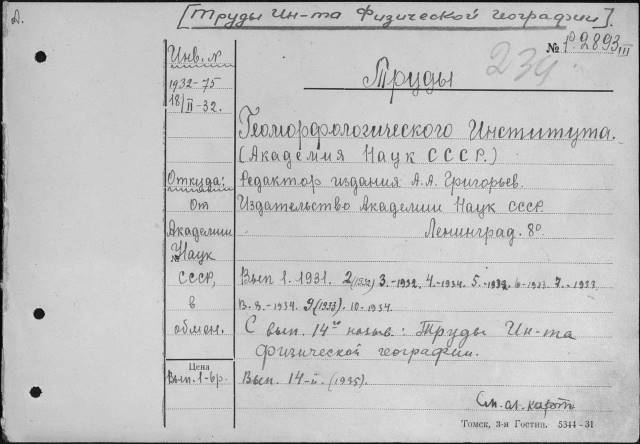 [Труды Ин-та Физической географии].
№ р.2893 III
239.
Инв. N
1932-75
18/II-32.
Труды
Геоморфологического Института.
(Академия Наук СССР.)
Откуда: Редактор издания А.А. Григорьев.
от Издательство Академии Наук СССР
Академии Ленинград. 8°
Наук
СССР, Вып 1. 1931. 2(1932) 3.-1932. 4.-1934. 5.-1932. 6-1933. 7.-1933.
в В. 8.-1934. 9(1933). 10.-1934.
обмен. С вып. 14го назыв.: Труды Ин-та
физической географии.
Цена
Вып. 1-6р. Вып. 14-й. (1935).
См. сл. карт.
Томск, 3-я Гостип. 5344-31